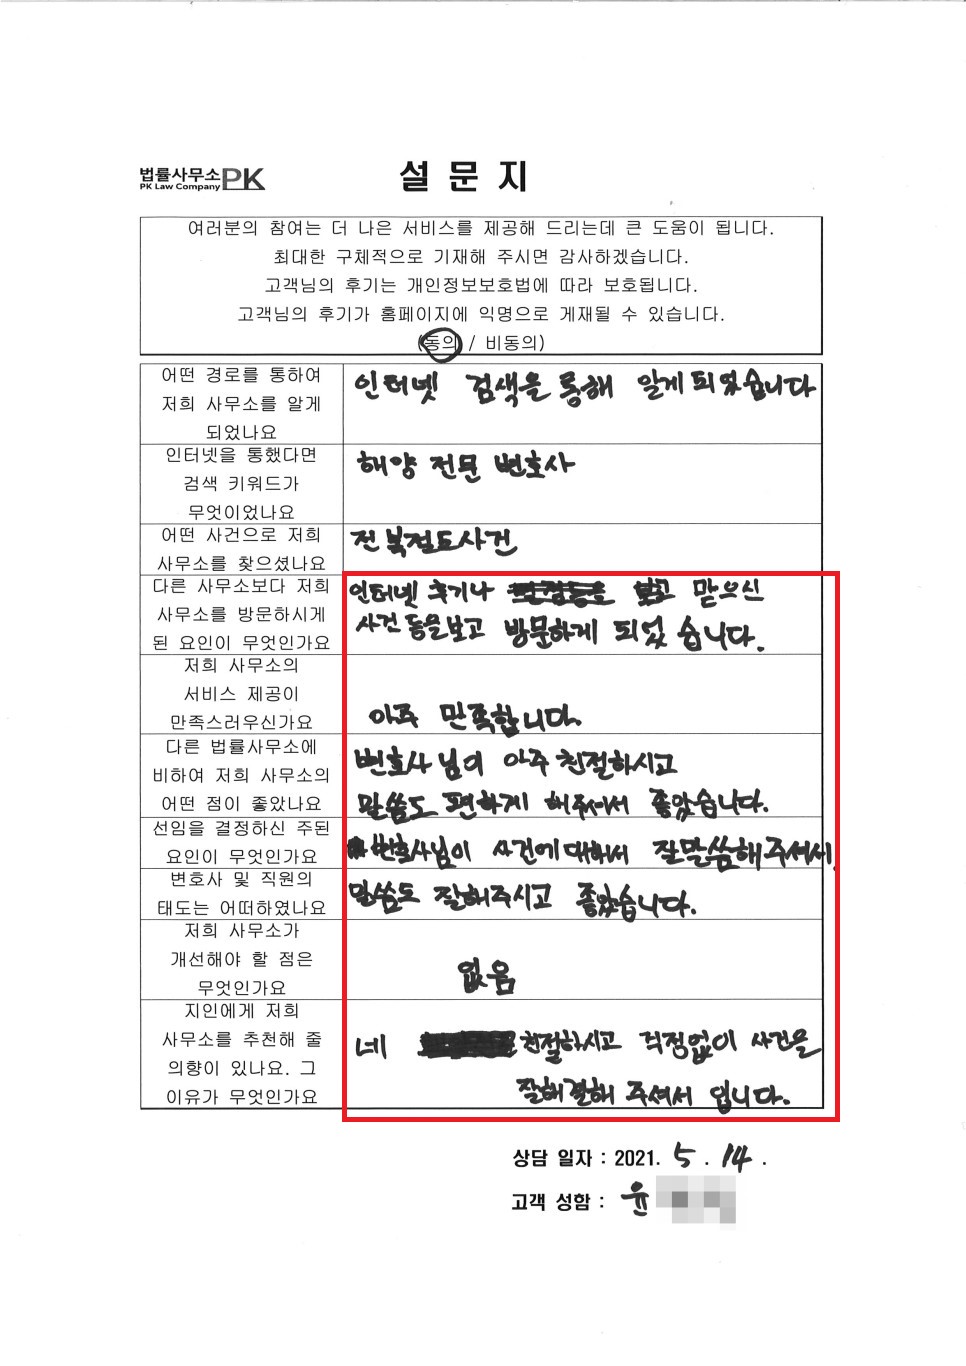 법률사무소 PK
PK Law Company
설 문 지
여러분의 참여는 더 나은 서비스를 제공해 드리는데 큰 도움이 됩니다.
최대한 구체적으로 기재해 주시면 감사하겠습니다.
고객님의 후기는 개인정보보호법에 따라 보호됩니다.
고객님의 후기가 홈페이지에 익명으로 게재될 수 있습니다.
(동의 / 비동의)
어떤 경로를 통하여
저희 사무소를 알게
되었나요
인터넷 검색을 통해 알게 되었습니다
인터넷을 통했다면
검색 키워드가
무엇이었나요
해양 전문 변호사
어떤 사건으로 저희
사무소를 찾으셨나요
전복절도사건
다른 사무소보다 저희
사무소를 방문하시게
된 요인이 무엇인가요
인터넷 후기나 맡으신
사건 등을보고 방문하게 되었습니다.
저희 사무소의
서비스 제공이
만족스러우신가요
아주 만족합니다.
다른 법률사무소에
비하여 저희 사무소의
어떤 점이 좋았나요
변호사님이 아주 친절하시고
말씀도 편하게 해주셔서 좋았습니다.
선임을 결정하신 주된
요인이 무엇인가요
변호사님이 사건에 대해서 잘말씀해주셔서.
변호사 및 직원의
태도는 어떠하였나요
말씀도 잘해주시고 좋았습니다.
저희 사무소가
개선해야 할 점은
무엇인가요
없음
지인에게 저희
사무소를 추천해 줄
의향이 있나요. 그
이유가 무엇인가요
네 친절하시고 걱정없이 사건을
잘해결해 주셔서 입니다.
상담 일자 : 2021. 5 . 14 .
고객 성함 : 윤